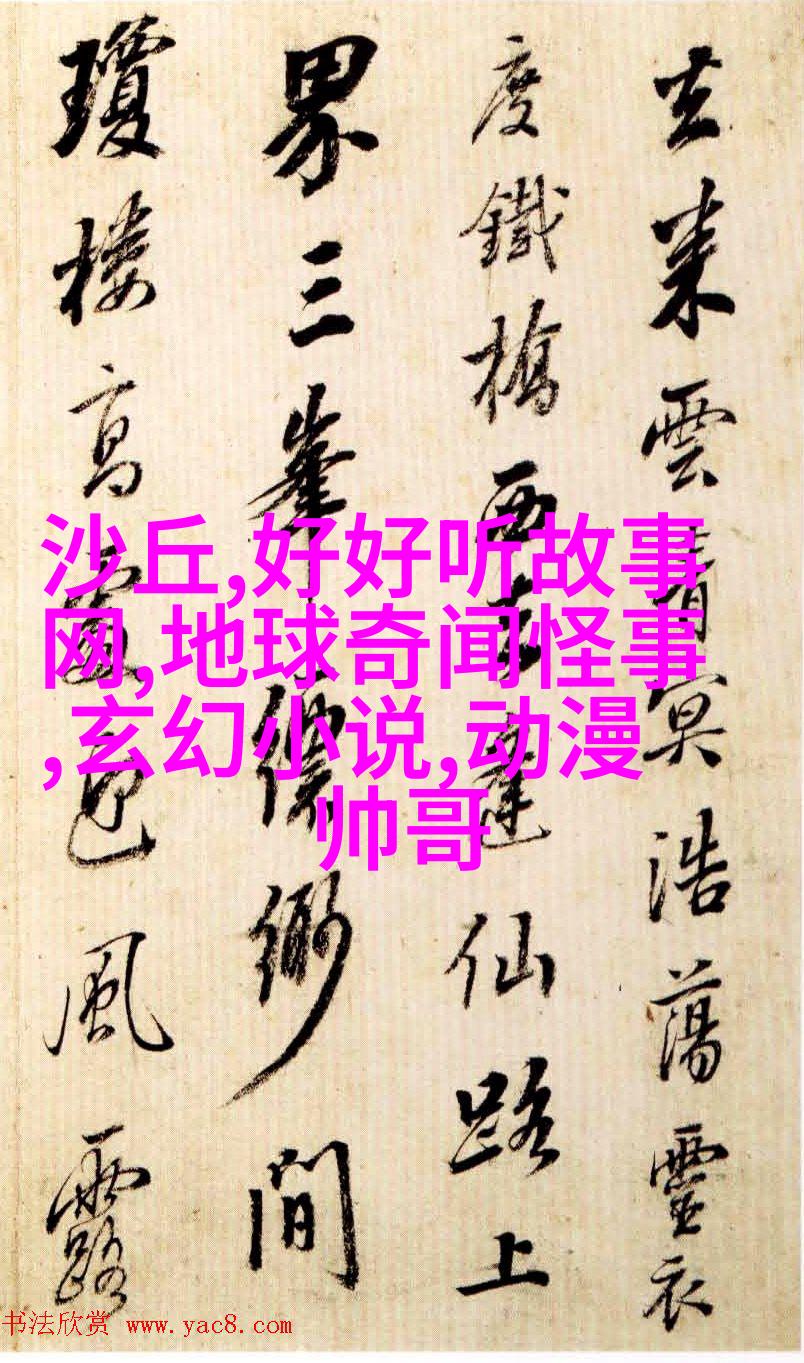 去来雲青冥浩蕩靈衣
度鐵橋西達仙路上
界三峯縹緲間
瓊樓高風露
沙丘,好好听故事
网,地球奇闻怪事
,玄幻小说,动漫
帅哥
书法欣赏 www.yac8.com